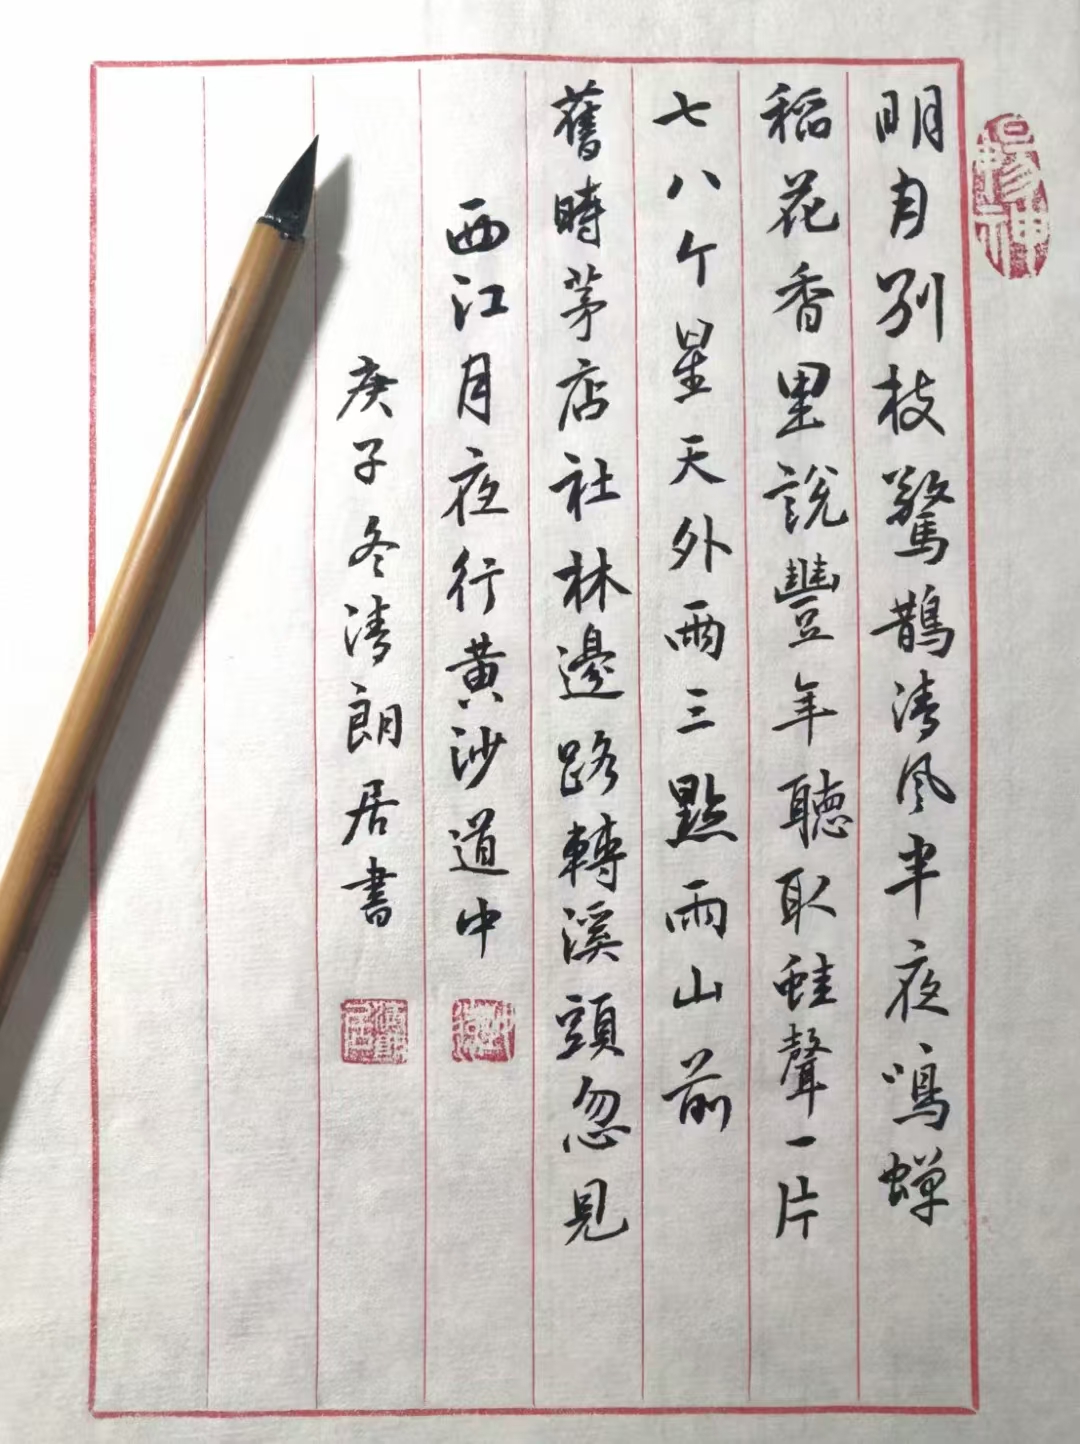 明月别枝驚鵲清风半夜鳴蝉
稻花香里說豐年聽取蛙聲一片
七八个星天外兩三點雨山前
舊時茅店社林邊路轉溪頭忽見
西江月夜行黄沙道中
庚子冬清朗居書
暢神